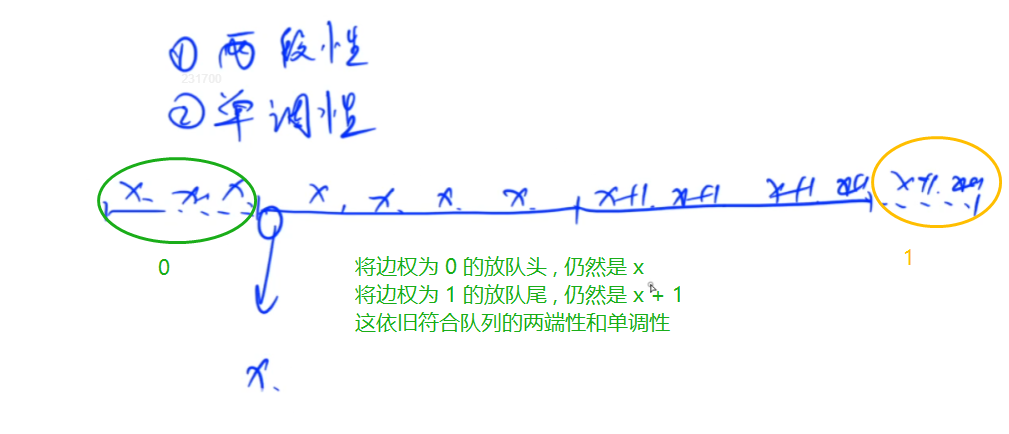 ① 两段性
231700
② 单调性
x x x x, x. x. x. x+1. x+1 x+1 x+1 x+1. x+1
0
1
将边权为 0 的放队头 , 仍然是 x
将边权为 1 的放队尾 , 仍然是 x + 1
这依旧符合队列的两端性和单调性
x.